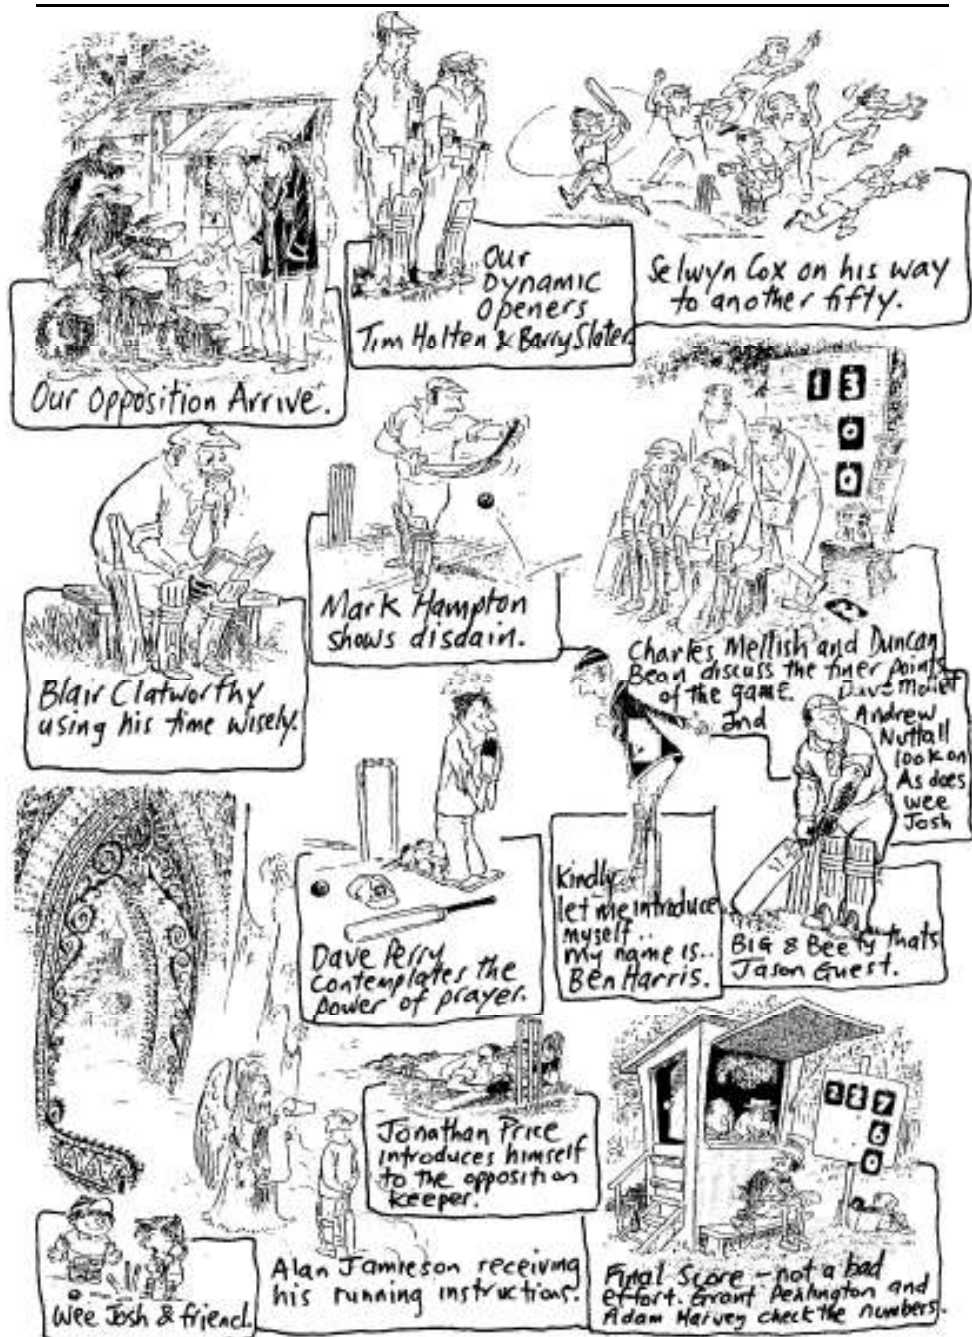 Our Opposition Arrive.
Our
Dynamic
Openers
Tim Holten & Barry Slater.
Selwyn Cox on his way
to another fifty.
13
0
0
Blair Clatworthy
using his time wisely.
Mark Hampton
shows disdain.
Charles Mellish and Duncan
Bean discuss the finer points
of the game.
and
Dave Mollet
Andrew
Nuttall
look on
As does
wee
Josh
Dave Perry
contemplates the
power of prayer.
Kindly
let me introduce
myself..
my name is..
Ben Harris.
BIG & Beefy thats
Jason Guest.
Jonathan Price
introduces himself
to the opposition
keeper.
237
6
0
Wee Josh & friend.
Alan Jamieson receiving
his running instructions.
Final Score - not a bad
effort. Grant Perlington and
Adam Harvey check the numbers.